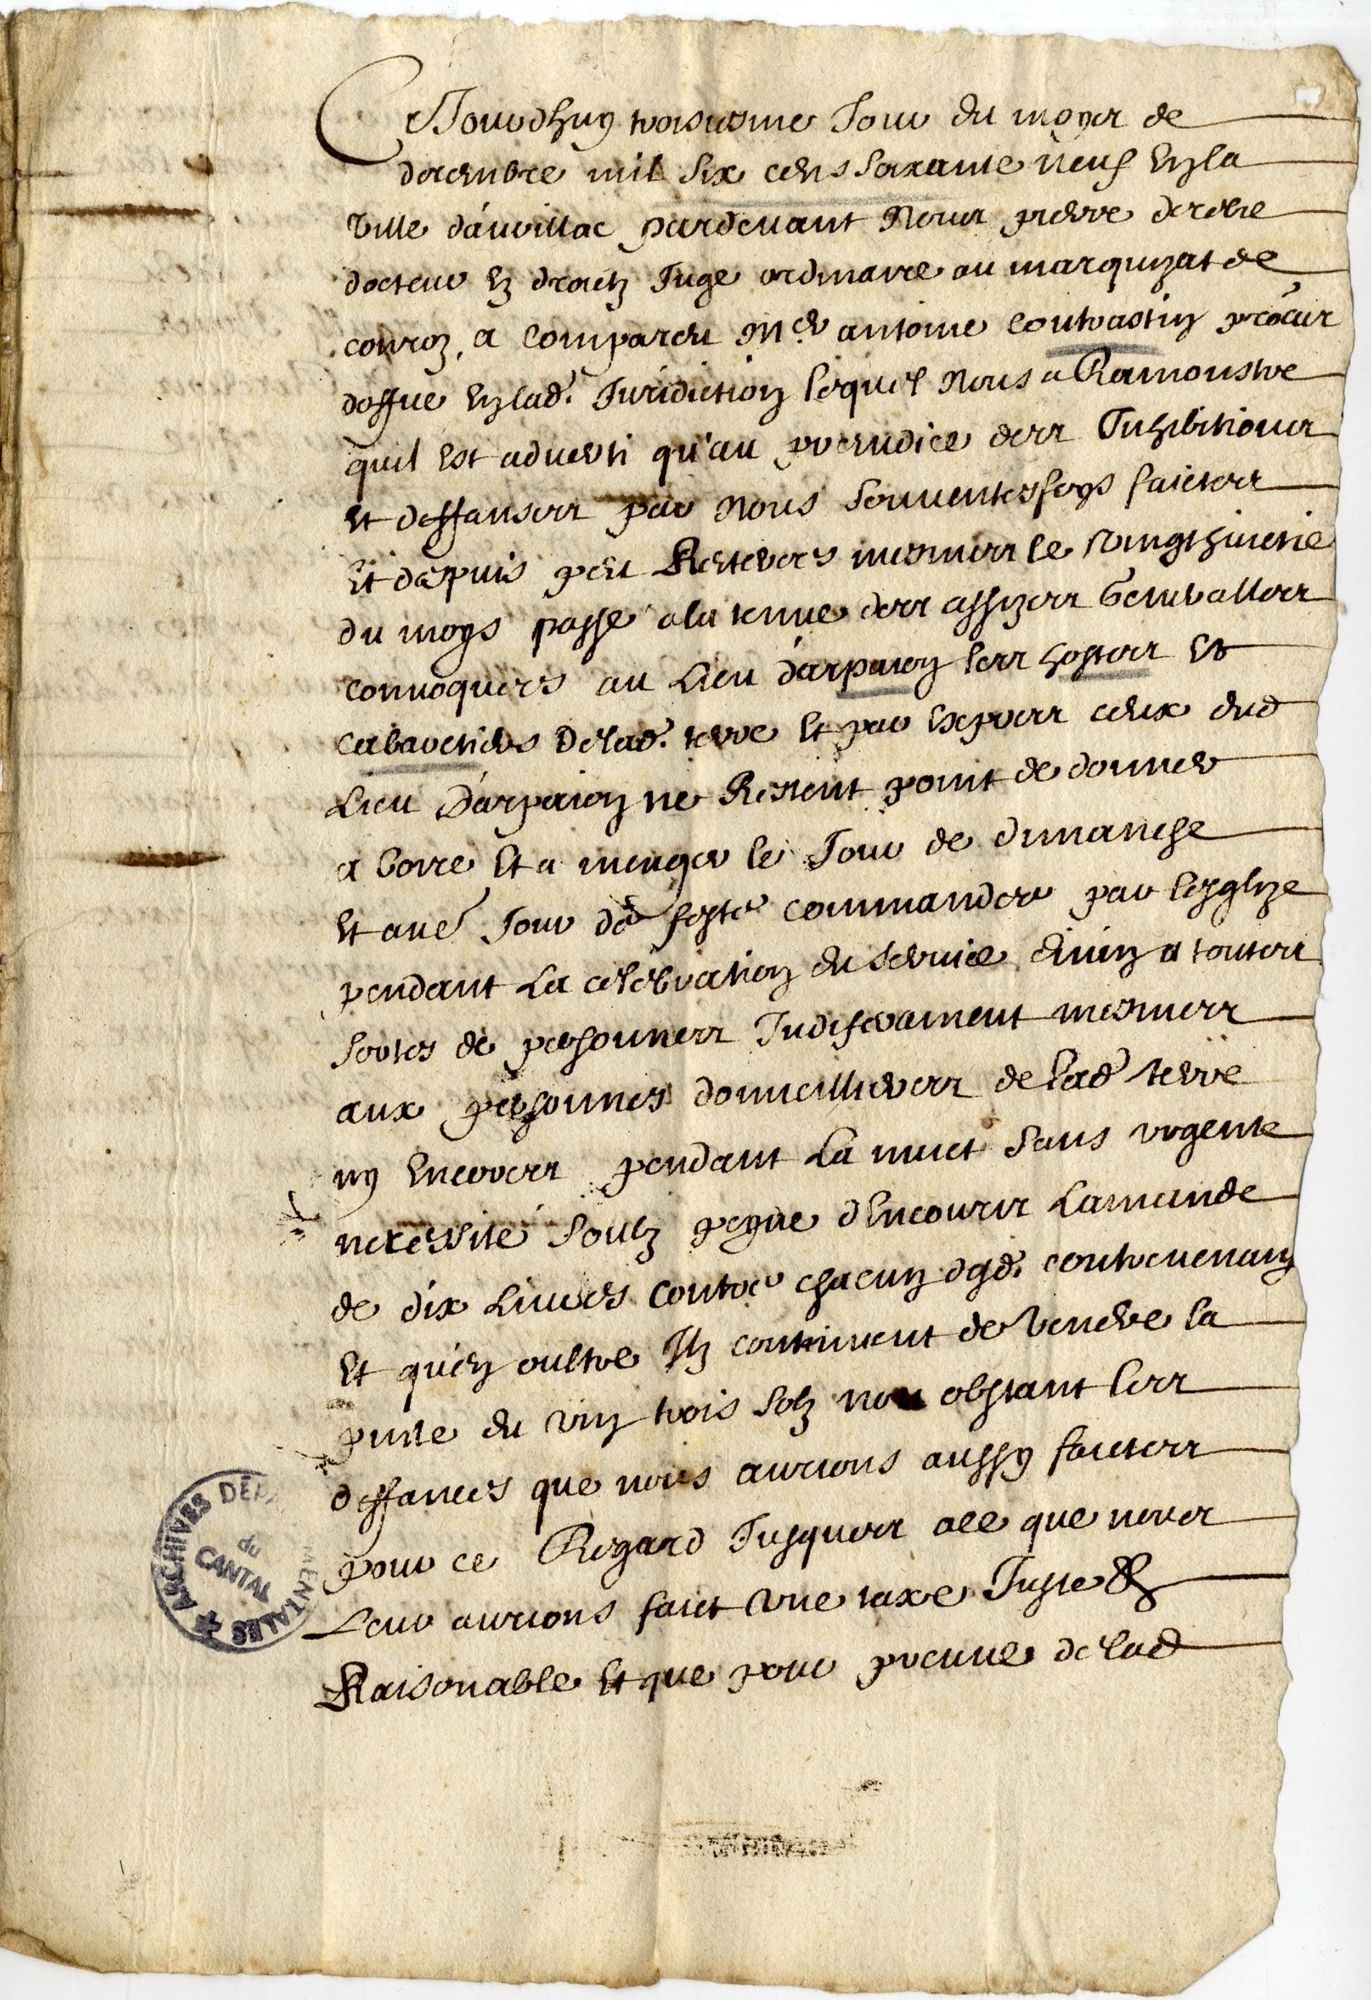 Ce Jourdhuy troisiesme Jour du moys de
decembre mil six cens soixante neuf En la
ville d'aurillac pardevant Nous pierre
docteur En droictz Juge ordinaire au marquizat de
conroz, a comparu Me antoine contrastin procur
doffice En lad. Juridiction lequel Nous a Ramonstre
quil Est adverti qu'au preiudice des Inhibitions
Et deffanses par Nous souventesfoys faictes
Et depuis peu Reiterees mesmes le vingt huictie
du moys passe a la tenue des assizes Generalles
convoquees au Lieu d'arpaion les hostes Et
cabaretiers De lad. terre Et par Expres ceux dud
Lieu D'arpaion ne Restent point de donner
a boire Et a menger le Jour de dimanche
Et aue Jour de feste commandee par lesglize
pendant La celebration du service divin a toutes
sortes de personnes Indiferament mesmes
aux personnes domeillieres de lad terre
ny Encores pendant La nuict sans urgente
necessite soulz peyne dEncourir Lamande
de dix Livres contre chacun dqd. contrevenans
Et qu'en oultre Ilz continuent de vendre la
pinte du vin trois solz non obstant les
deffances que nous aurions aussy faictes
pour ce Regard Jusques a ce que nous
Leur aurions faict une taxe Juste &
Raisonable Et que pour preuve de lad
ARCHIVES DÉPARTEMENTALES
du
CANTAL